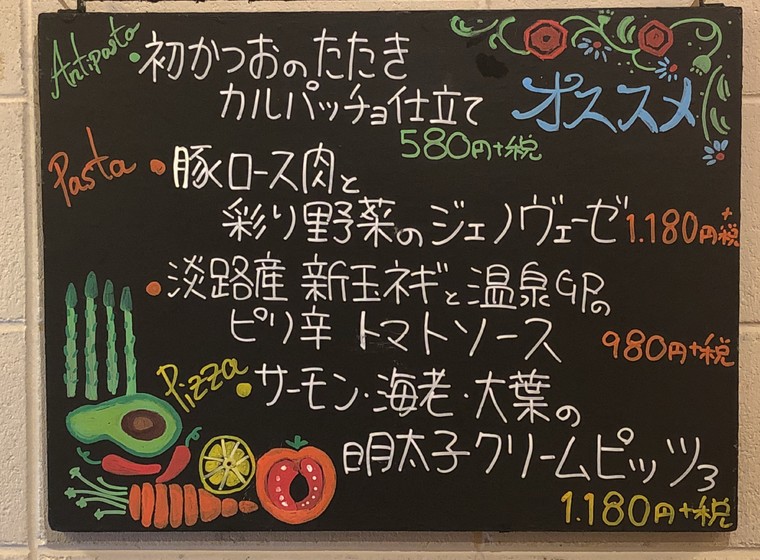 Antipasta
オススメ
・初かつおのたたき
カルパッチョ仕立て
580円+税
Pasta
・豚ロース肉と
彩り野菜のジェノヴェーゼ 1.180円+税
・淡路産 新玉ネギと温泉 の
ピリ辛 トマトソース
980円+税
Pizza
・サーモン・海老・大葉の
明太子クリームピッツァ
1.180円+税